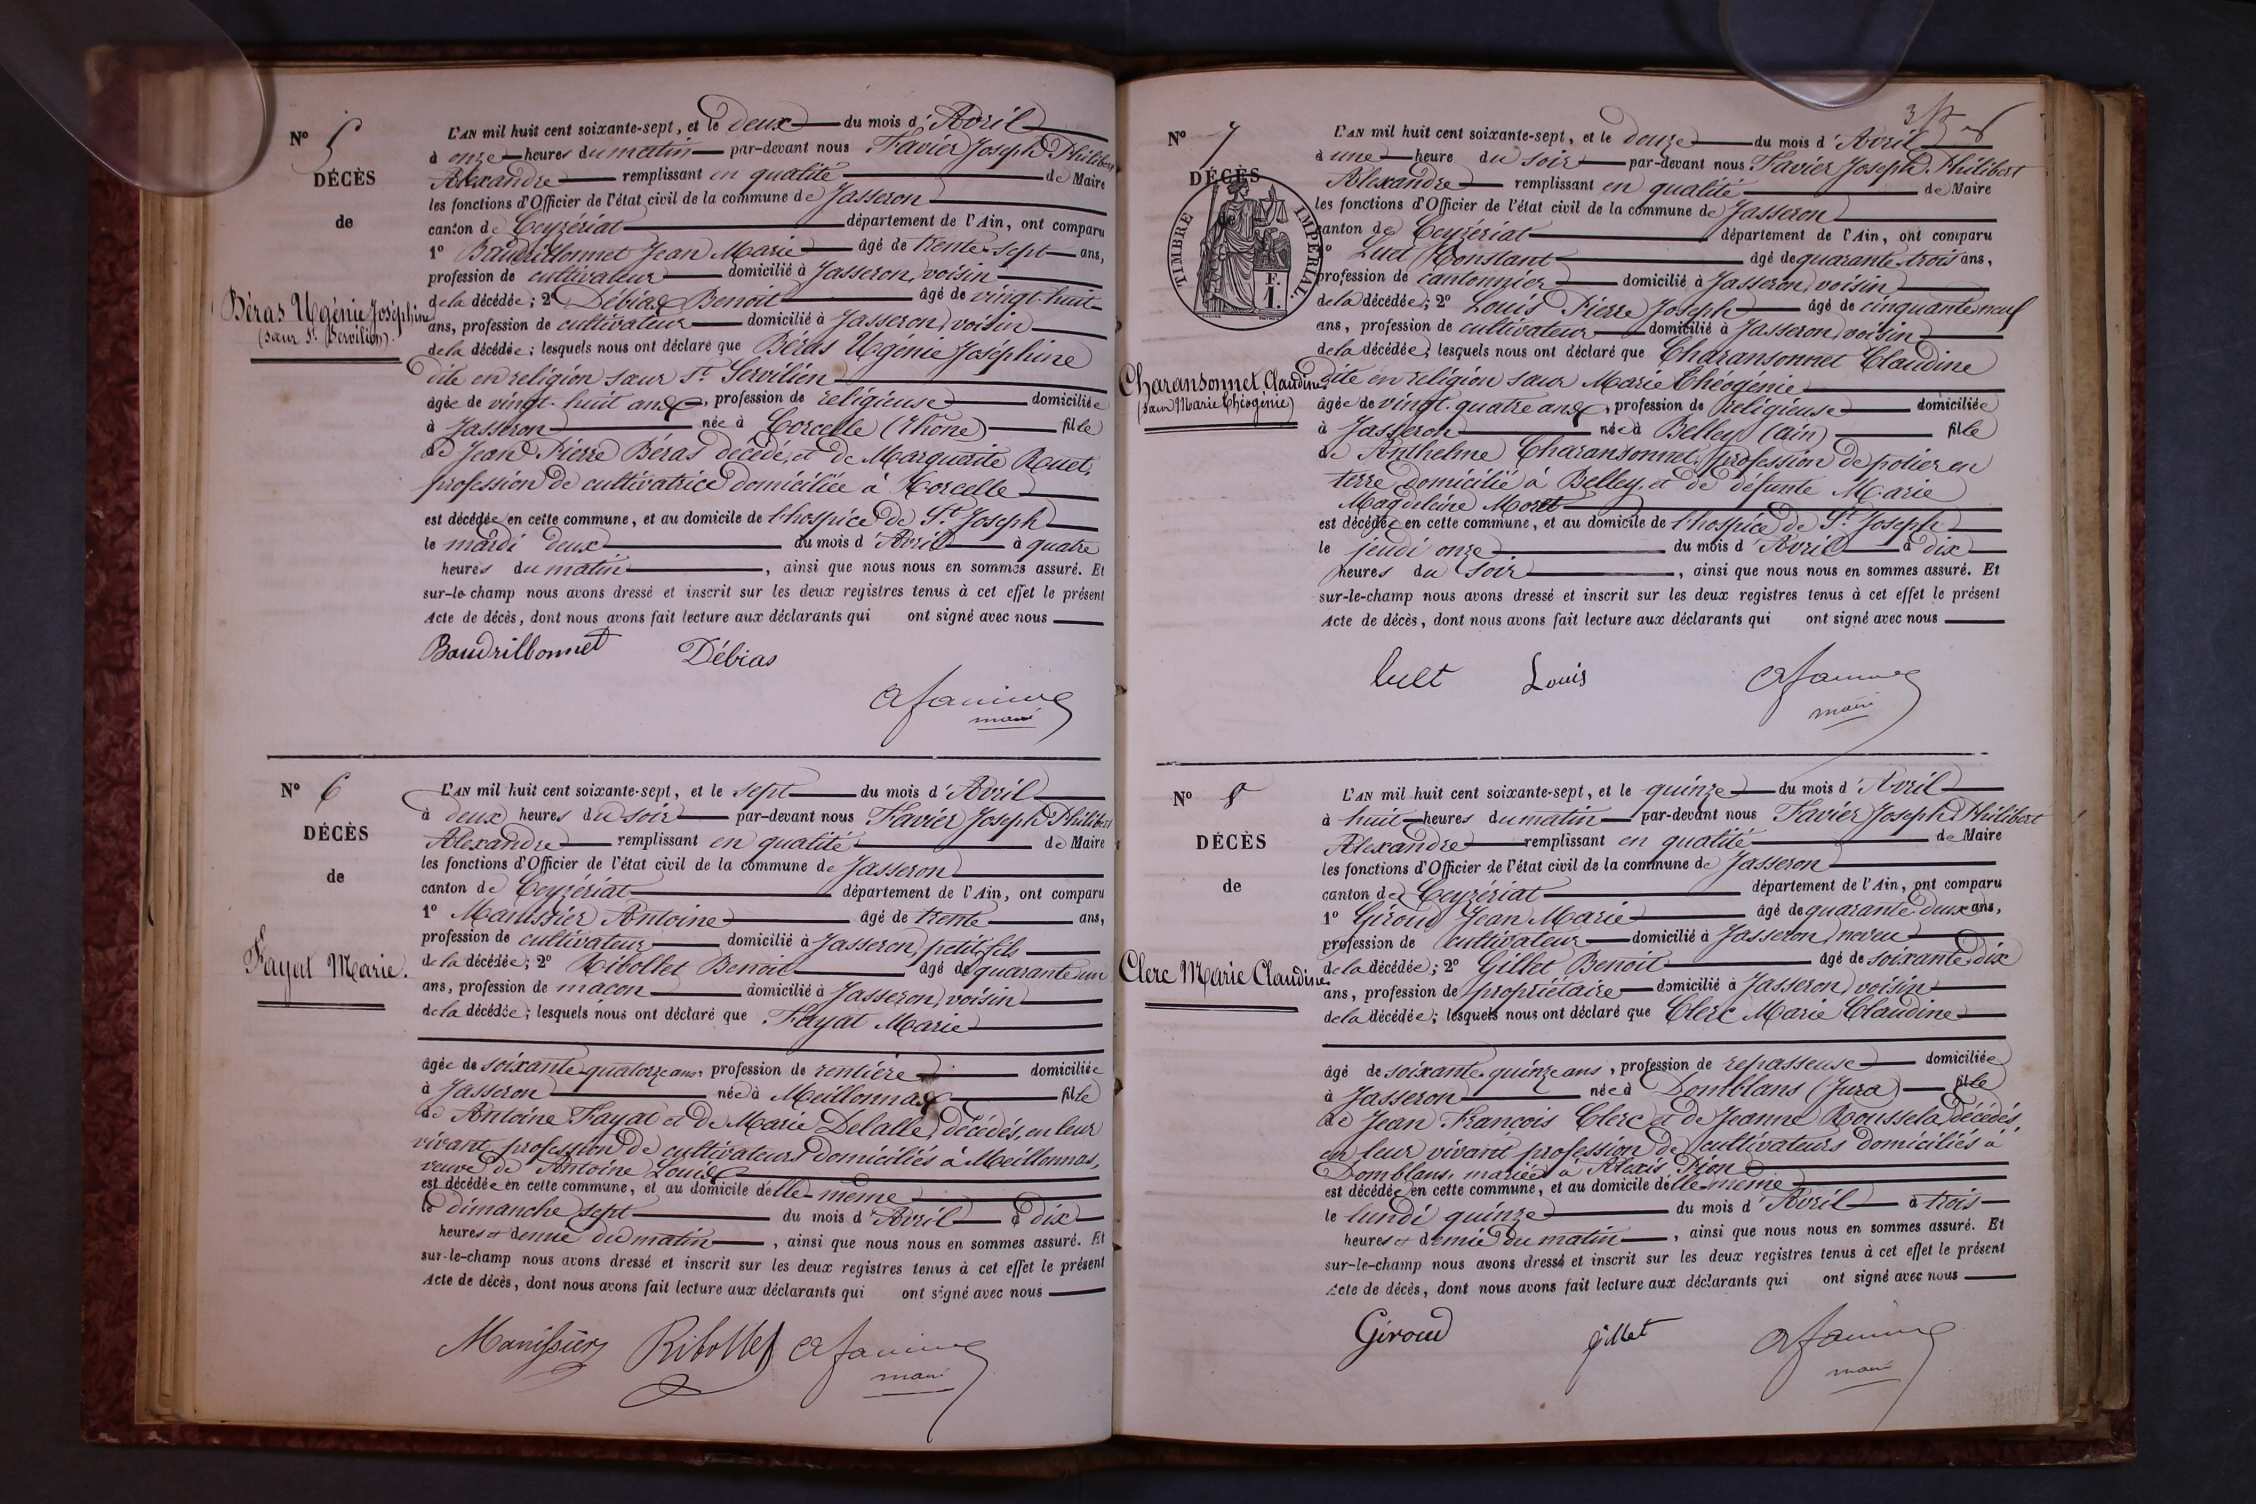 N° 5
DÉCÈS
de
Béras Ugénie Joséphine
(sœur St. Servilien).
L'AN mil huit cent soixante-sept, et le deux du mois d'Avril
à onze heures du matin par-devant nous Favier Joseph Philibert
Alexandre remplissant en qualité de Maire
les fonctions d'Officier de l'état civil de la commune de Jasseron
canton de Ceyzériat département de l'Ain, ont comparu
1° Baudrillonnet Jean Marie âgé de trente-sept ans,
profession de cultivateur domicilié à Jasseron, voisin
de la décédée; 2° Débias Benoit âgé de vingt-huit
ans, profession de cultivateur domicilié à Jasseron, voisin
de la décédée; lesquels nous ont déclaré que Béras Ugénie Joséphine
dite en religion sœur St. Servilien
âgée de vingt-huit ans, profession de religieuse domiciliée
à Jasseron née à Corcelle (Rhône) fille
de Jean Pierre Béras décédé, et de Marguerite Ruet,
profession de cultivatrice domiciliée à Corcelle
est décédée en cette commune, et au domicile de l'hospice de St. Joseph
le mardi deux du mois d'Avril à quatre
heures du matin, ainsi que nous nous en sommes assuré. Et
sur-le-champ nous avons dressé et inscrit sur les deux registres tenus à cet effet le présent
Acte de décès, dont nous avons fait lecture aux déclarants qui ont signé avec nous
Baudrillonnet Débias
maire
N° 6
DÉCÈS
de
Fayat Marie.
L'AN mil huit cent soixante-sept, et le sept du mois d'Avril
à deux heures du soir par-devant nous Favier Joseph Philibert
Alexandre remplissant en qualité de Maire
les fonctions d'Officier de l'état civil de la commune de Jasseron
canton de Ceyzériat département de l'Ain, ont comparu
1° Manissier Antoine âgé de trente ans,
profession de cultivateur domicilié à Jasseron, petit fils
de la décédée; 2° Ribollet Benoit âgé de quarante un
ans, profession de macon domicilié à Jasseron, voisin
de la décédée; lesquels nous ont déclaré que Fayat Marie
âgée de soixante-quatorze ans, profession de rentière domiciliée
à Jasseron née à Meillonnas fille
de Antoine Fayat et de Marie Delalle, décédés, en leur
vivant profession de cultivateurs domiciliés à Meillonnas,
veuve de Antoine Louis
est décédée en cette commune, et au domicile d'elle-même
le dimanche sept du mois d'Avril à dix
heures et demie du matin, ainsi que nous nous en sommes assuré. Et
sur-le-champ nous avons dressé et inscrit sur les deux registres tenus à cet effet le présent
Acte de décès, dont nous avons fait lecture aux déclarants qui ont signé avec nous
Manissier Ribollet
maire
N° 7
DÉCÈS
de
TIMBRE IMPÉRIAL.
F.
1.
Charansonnet Claudine
(sœur Marie Théogénie)
L'AN mil huit cent soixante-sept, et le douze du mois d'Avril
à une heure du soir par-devant nous Favier Joseph Philibert
Alexandre remplissant en qualité de Maire
les fonctions d'Officier de l'état civil de la commune de Jasseron
canton de Ceyzériat département de l'Ain, ont comparu
1° Luet Constant âgé de quarante-trois ans,
profession de cantonnier domicilié à Jasseron, voisin
de la décédée; 2° Louis Pierre Joseph âgé de cinquante neuf
ans, profession de cultivateur domicilié à Jasseron, voisin
de la décédée; lesquels nous ont déclaré que Charansonnet Claudine
dite en religion sœur Marie Théogénie
âgée de vingt-quatre ans, profession de religieuse domiciliée
à Jasseron née à Belley (Ain) fille
de Anthelme Charansonnet, profession de potier en
terre domicilié à Belley, et de défunte Marie
Magdeleine Moret
est décédée en cette commune, et au domicile de l'hospice de St. Joseph
le jeudi onze du mois d'Avril à dix
heures du soir, ainsi que nous nous en sommes assuré. Et
sur-le-champ nous avons dressé et inscrit sur les deux registres tenus à cet effet le présent
Acte de décès, dont nous avons fait lecture aux déclarants qui ont signé avec nous
Louis
maire
N° 8
DÉCÈS
de
Clerc Marie Claudine
L'AN mil huit cent soixante-sept, et le quinze du mois d'Avril
à huit heures du matin par-devant nous Favier Joseph Philibert
Alexandre remplissant en qualité de Maire
les fonctions d'Officier de l'état civil de la commune de Jasseron
canton de Ceyzériat département de l'Ain, ont comparu
1° Giroud Jean Marie âgé de quarante-deux ans,
profession de cultivateur domicilié à Jasseron, neveu
de la décédée; 2° Gillet Benoit âgé de soixante-dix
ans, profession de propriétaire domicilié à Jasseron, voisin
de la décédée; lesquels nous ont déclaré que Clerc Marie Claudine
âgé de soixante-quinze ans, profession de repasseuse domiciliée
à Jasseron née à Domblans (Jura) fille
de Jean Francois Clerc et de Jeanne Rousselo décédés,
en leur vivant profession de cultivateurs domiciliés à
Domblans, mariée à Alexis Pion
est décédée en cette commune, et au domicile d'elle-même
le lundi quinze du mois d'Avril à trois
heures et demie du matin, ainsi que nous nous en sommes assuré. Et
sur-le-champ nous avons dressé et inscrit sur les deux registres tenus à cet effet le présent
Acte de décès, dont nous avons fait lecture aux déclarants qui ont signé avec nous
Giroud Gillet
maire